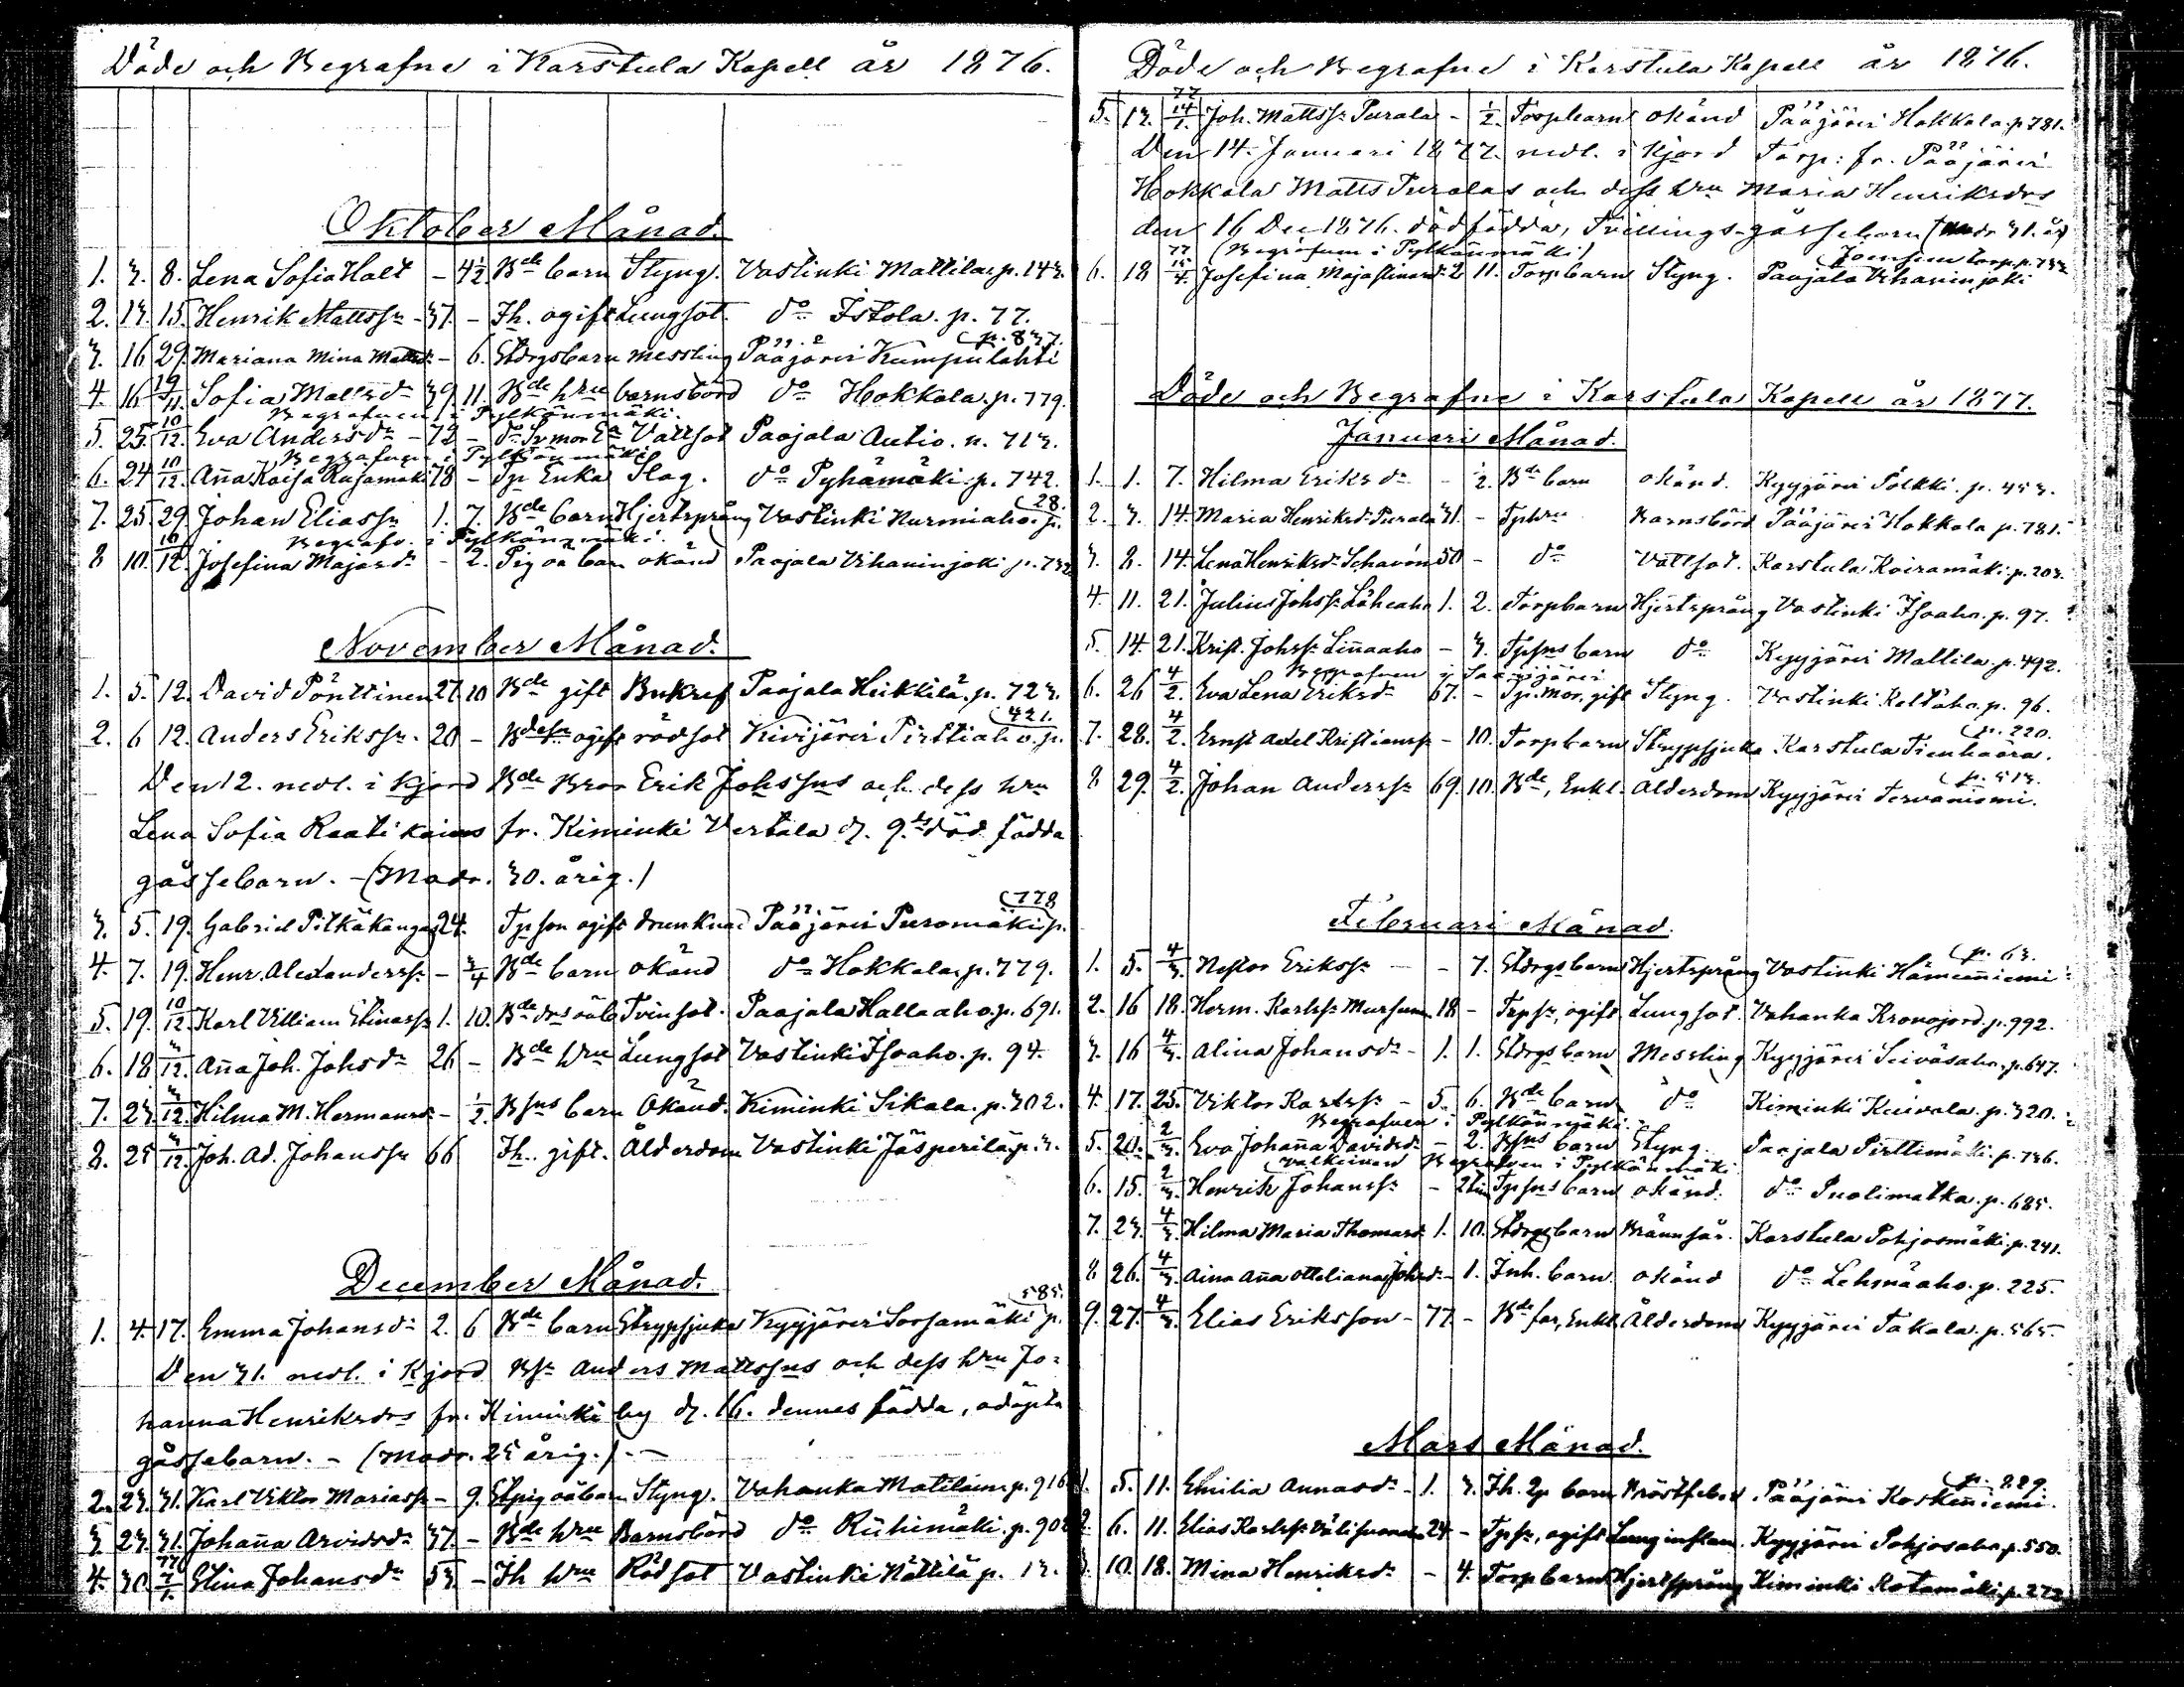 Döde och Begrafne i Karstula Kapell år 1876.
Oktober Månad.
1. 3. 8. Lena Sofia Halt - 4½ Bde barn Styng. Vastinki Mattila p. 143.
2. 13. 15. Henrik Mattssn - 37. - Jh. ogift Lungsot do Istola. p. 77.
(p. 837.
3. 16 29. Mariana Mina Mattsd. - 6. Stdrgsbarn messling Pääjärvi Kumpulahti
4. 16 19/11. Sofia Mattsdr 39. 11. Bde hru barnsbörd do Hokkala. p. 779.
Begrafven i Pylkönmäki.
5. 25. 10/12. Eva Andersdr - 72 - do Sv.mor Ea Vattsot Paajala Autio. n. 713.
Begrafven i Pylkönmäki
6. 24 10/12. Anna Kaisa Rusamäki 78 - Tp Enka Slag. do Pyhämäki p. 742.
(28.
7. 25. 29. Johan Eliassn 1. 7. Bde barn Hjertsprång Vastinki Nurmiaho. p.
Begrafv. i Pylkönmäki.
8 10. 10/12. Josefina Majasdr - 2. Pig oä barn okänd Paajala Uhaninjoki p. 732
November Månad.
1. 5. 12. David Pönttinen 27. 10 Bde gift Bukref Paajala Heikkilä. p. 723.
(421.
2. 6 12. Anders Erikssn. 20 - Bdesn ogift rödsot Kivijärvi Pirttiaho. p.
Den 12. nedl. i Kjord Bde Bror Erik Johssns och dess hru
Lena Sofia Raatikains fr. Kiminki Vertala d. 9. ds död födda
gåssebarn. - (Modr. 30. årig.)
(778
3. 5. 19. Gabriel Pitkäkangas 24. Tpson ogift drunknad Pääjärvi Puromäki p.
4. 7. 19. Henr. Alexanderssn - ¾ Bde barn okänd do Hokkala. p. 779.
5. 19. 10/12 Karl Villiam Stinassn 1. 10. Bde drs oäb Tvinsot. Paajala Hallaaho. p. 691.
6. 18 3/12. Anna Joh. Johsdr 26 - Bde hru Lungsot Vastinki Isoaho. p. 94.
7. 23 3/12. Hilma M. Hermansd. - ½ Bsns barn Okänd. Kiminki Sikala. p. 302.
8. 25 3/12. Joh. Ad. Johanssn 66 Jh. gift. Ålderdom Vastinki Jäsperilä p. 3.
December Månad.
(585.
1. 4. 17. Emma Johansdr 2. 6 Bde barn Strypsjuka Kyyjärvi Sorsamäki p.
Den 31. nedl. i Kjord Bsn Anders Mattssns och dess hru Jo-
hanna Henriksdrs fr. Kiminki by d. 16. dennes födda, odöpta
gåssebarn. - (Modr. 25 årig.) -
2. 23. 31. Karl Viktor Mariassn - 9. Stpig oäbarn Styng. Vahanka Matilain p. 916
3 23. 31. Johanna Arvidsdr 37. - Bde hru Barnsbörd do Riihimäki. p. 902
4. 30. 77 7/1. Stina Johansdr 53. - Jh hru Rödsot Vastinki Nättilä p. 13.
Döde och Begrafne i Karstula Kapell år 1876.
5. 13. 77 14/1. Joh. Mattssn Purala - ½. Torpbarn okänd Pääjärvi Hokkala. p. 781.
Den 14. Januari 1877. nedl. i Kjord Torp: fr. Pääjärvi
Hokkala Matts Puralas och dess hru Maria Henriksdrs
den 16 Dec 1876. dödfödda, Tvillings-gåssebarn (Modr 31. år)
(Begrafven i Pylkönmäki)
6. 18 77 15/4. Josefina Majastinasd. 2 11. Torpbarn Styng. Paajala Uhaninjoki
Döde och Begrafne i Karstula Kapell år 1877.
Januari Månad.
1. 1. 7. Hilma Eriksdr - ½. Bde barn okänd. Kyyjärvi Pölkki. p. 453.
2. 3. 14. Maria Henriksd. Purala 31. - Tphru Barnsbörd Pääjärvi Hokkala p. 781.
3. 8. 14. Lena Henriksd. Schavón 50 - do Vattsot. Karstula Koiramäki. p. 203.
4. 11. 21. Julius Johssn Läheaho 1. 2. Torpbarn Hjertsprång Vastinki Isoaho. p. 97.
5. 14. 21. Krist. Johssn Linnaaho - 3. Tpsns barn do Kyyjärvi Mattila. p. 492.
Begrafven i Saarijärvi
6. 26 4/2. Eva Lena Eriksdr 67. - Tp. mor, gift Styng. Vastinki Keltaho. p. 96.
(p. 220.
7. 28. 4/2. Ernst Axel Kristianssn - 10. Torpbarn Strypsjuka Karstula Tienhaara.
(p. 513.
8 29. 4/2. Johan Anderssn 69. 10. Bde, Enkl. Ålderdom Kyyjärvi Tervaniemi.
Februari Månad.
(p. 63.
1. 5. 4/3. Nestor Erikssn - 7. Stdrgsbarn Hjertsprång Vastinki Hämeenniemi
2. 16 18. Herm. Karlssn Mursunen 18 - Tpsn, ogift Lungsot. Vahanka Kronojord. p. 992.
3. 16 4/3. Alina Johansdr - 1. 1. Stdrgsbarn Messling Kyyjärvi Seiväsaho. p. 647.
4. 17. 25. Viktor Karlssn - 5. 6. Bde barn do Kiminki Kuivala. p. 320.
Begrafven i Pylkönmäki.
5. 20. 2/3. Eva Johanna Davidsd. - 2. Bsns barn Styng. Paajala Pirttimäki. p. 736.
Begrafven i Pylkönmäki
6. 15. 2/3. Henrik Johanssn - 2tim Tpsns barn okänd. do Puolimatka. p. 685.
7. 23. 4/3. Hilma Maria Thomasd. 1. 10. Stdrgsbarn Brännsår. Karstula Pohjosmäki. p. 241.
8 26. 4/3. Aina Anna Otteliana Johsd. - 1. Inh. barn. okänd do Lehmäaho. p. 225.
9. 27. 4/3. Elias Eriksson - 77. - Bde far, Enkl. Ålderdom Kyyjärvi Takala. p. 565.
Mars Månad.
(p. 829.
1. 5. 11. Emilia Annasdr - 1. 3. Jh. barn Pääjärvi Koskenniemi.
2. 6. 11. Elias Karlssn 24. - Tpsn, ogift Lunginflam. Kyyjärvi Pohjosaho p. 550.
3. 10. 18. Mina Henriksdr - 4. Torpbarn Hjertsprång Kiminki Rotamäki. p. 272